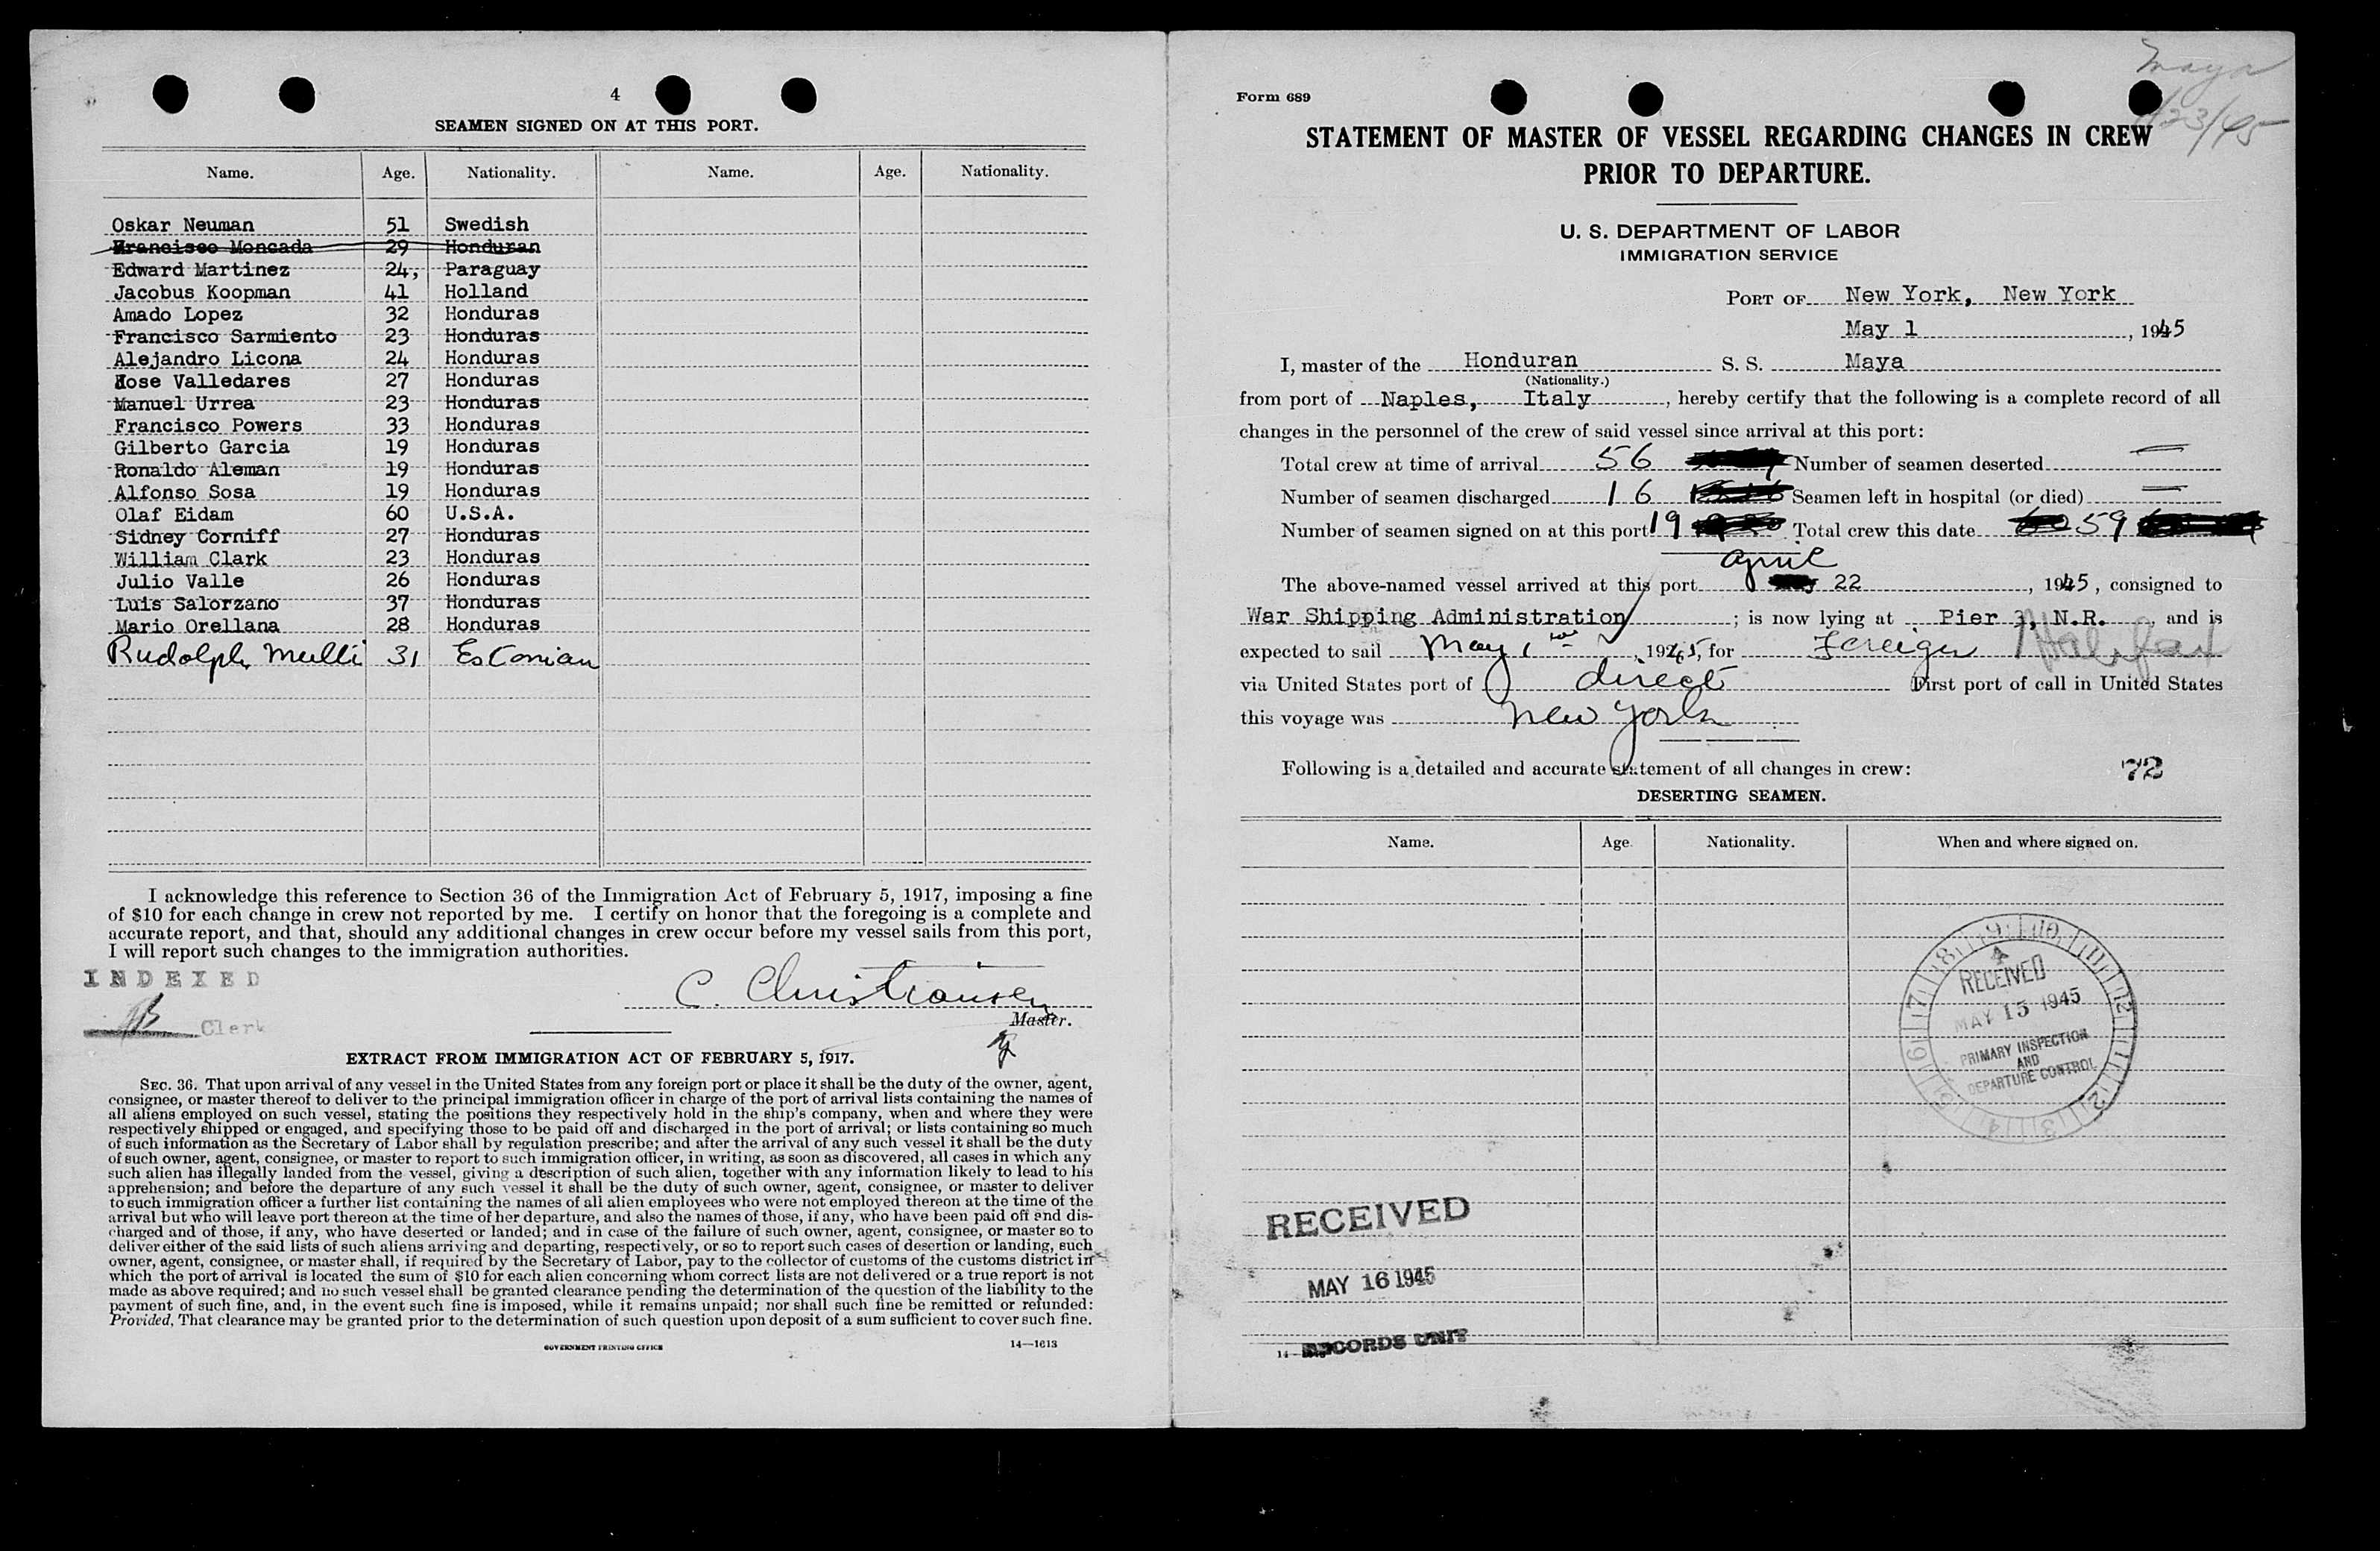 4
SEAMEN SIGNED ON AT THIS PORT.
Name. Age. Nationality. Name. Age. Nationality.
Oskar Neuman 51 Swedish
Francisco Moncada 29 Honduran
Edward Martinez 24, Paraguay
Jacobus Koopman 41 Holland
Amado Lopez 32 Honduras
Francisco Sarmiento 23 Honduras
Alejandro Licona 24 Honduras
Jose Valledares 27 Honduras
Manuel Urrea 23 Honduras
Francisco Powers 33 Honduras
Gilberto Garcia 19 Honduras
Ronaldo Aleman 19 Honduras
Alfonso Sosa 19 Honduras
Olaf Eidam 60 U.S.A.
Sidney Corniff 27 Honduras
William Clark 23 Honduras
Julio Valle 26 Honduras
Luis Salorzano 37 Honduras
Mario Orellana 28 Honduras
Rudolph Mulli 31 Estonian
I acknowledge this reference to Section 36 of the Immigration Act of February 5, 1917, imposing a fine
of $10 for each change in crew not reported by me. I certify on honor that the foregoing is a complete and
accurate report, and that, should any additional changes in crew occur before my vessel sails from this port,
I will report such changes to the immigration authorities.
INDEXED
C. Christiansen
Clerk
Master.
EXTRACT FROM IMMIGRATION ACT OF FEBRUARY 5, 1917.
SEC. 36. That upon arrival of any vessel in the United States from any foreign port or place it shall be the duty of the owner, agent,
consignee, or master thereof to deliver to the principal immigration officer in charge of the port of arrival lists containing the names of
all aliens employed on such vessel, stating the positions they respectively hold in the ship's company, when and where they were
respectively shipped or engaged, and specifying those to be paid off and discharged in the port of arrival; or lists containing so much
of such information as the Secretary of Labor shall by regulation prescribe; and after the arrival of any such vessel it shall be the duty
of such owner, agent, consignee, or master to report to such immigration officer, in writing, as soon as discovered, all cases in which any
such alien has illegally landed from the vessel, giving a description of such alien, together with any information likely to lead to his
apprehension; and before the departure of any such vessel it shall be the duty of such owner, agent, consignee, or master to deliver
to such immigration officer a further list containing the names of all alien employees who were not employed thereon at the time of the
arrival but who will leave port thereon at the time of her departure, and also the names of those, if any, who have been paid off and dis-
charged and of those, if any, who have deserted or landed; and in case of the failure of such owner, agent, consignee, or master so to
deliver either of the said lists of such aliens arriving and departing, respectively, or so to report such cases of desertion or landing, such
owner, agent, consignee, or master shall, if required by the Secretary of Labor, pay to the collector of customs of the customs district in
which the port of arrival is located the sum of $10 for each alien concerning whom correct lists are not delivered or a true report is not
made as above required; and no such vessel shall be granted clearance pending the determination of the question of the liability to the
payment of such fine, and, in the event such fine is imposed, while it remains unpaid; nor shall such fine be remitted or refunded:
Provided, That clearance may be granted prior to the determination of such question upon deposit of a sum sufficient to cover such fine.
GOVERNMENT PRINTING OFFICE 14—1613
Maya
/23/45
Form 689
STATEMENT OF MASTER OF VESSEL REGARDING CHANGES IN CREW
PRIOR TO DEPARTURE.
U. S. DEPARTMENT OF LABOR
IMMIGRATION SERVICE
PORT OF New York, New York
May 1, 1945
I, master of the Honduran S. S. Maya
(Nationality.)
from port of Naples, Italy, hereby certify that the following is a complete record of all
changes in the personnel of the crew of said vessel since arrival at this port:
Total crew at time of arrival 56 Number of seamen deserted —
Number of seamen discharged 16 Seamen left in hospital (or died) —
Number of seamen signed on at this port 19 Total crew this date 59
April
The above-named vessel arrived at this port 22, 1945, consigned to
War Shipping Administration; is now lying at Pier 3, N.R., and is
expected to sail May 1st, 1945, for Foreign Halifax
via United States port of direct First port of call in United States
this voyage was New York
Following is a detailed and accurate statement of all changes in crew: 72
DESERTING SEAMEN.
Name. Age. Nationality. When and where signed on.
RECEIVED
MAY 15 1945
PRIMARY INSPECTION
AND
DEPARTURE CONTROL
RECEIVED
MAY 16 1945
RECORDS UNIT
14—